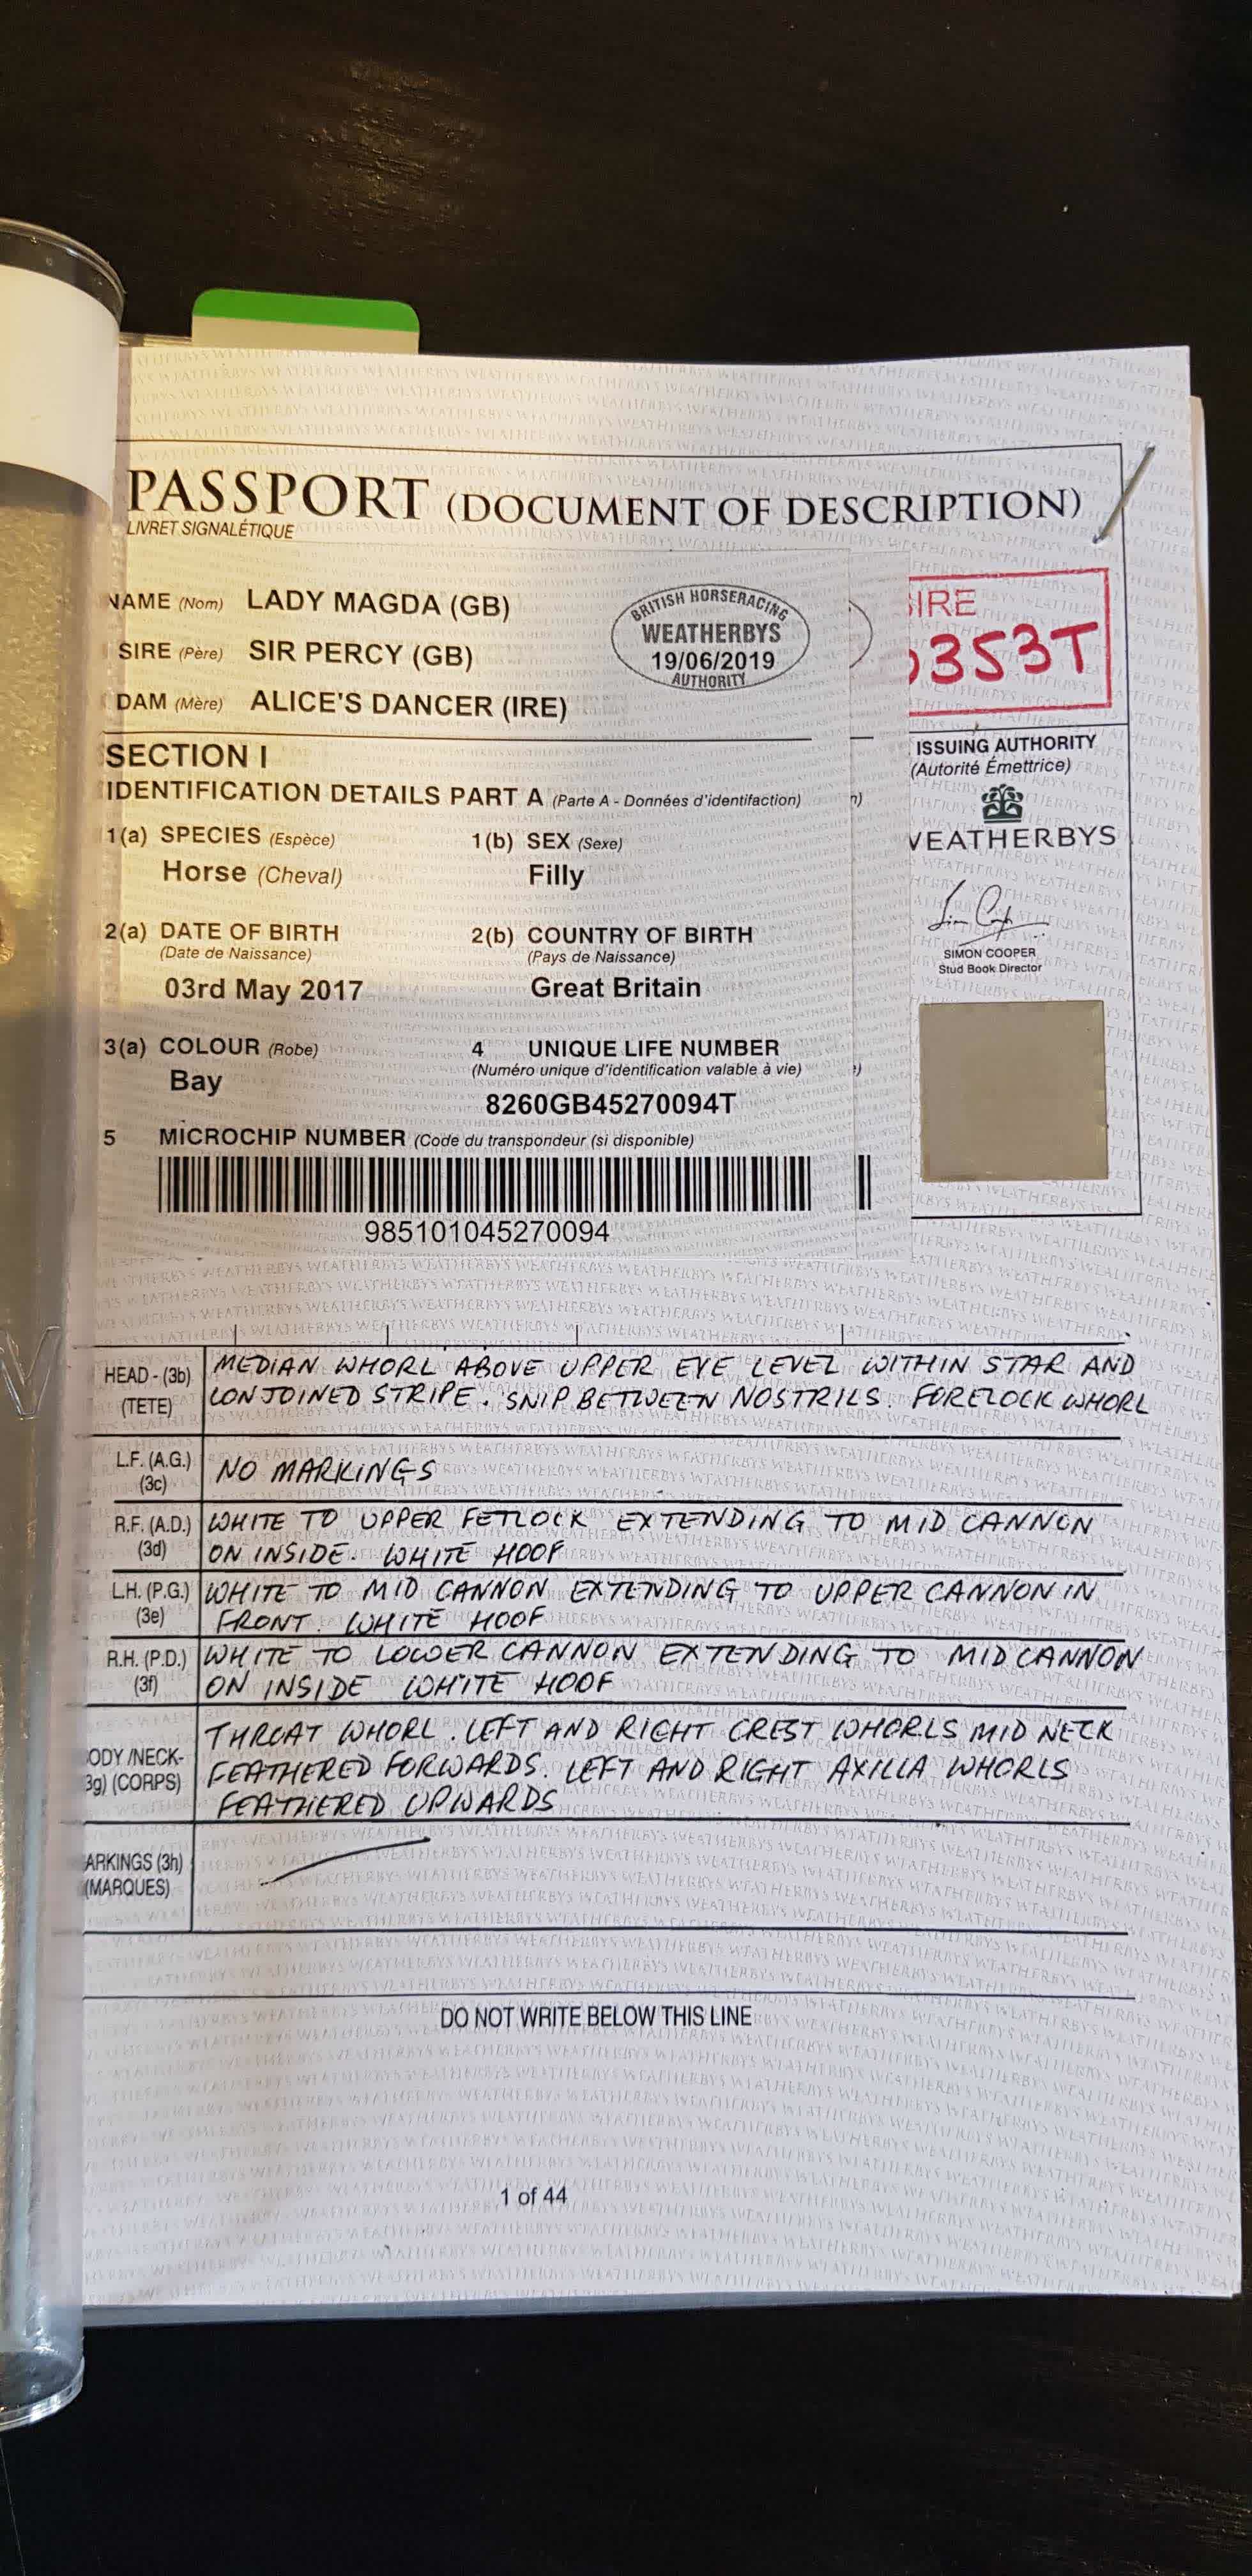 PASSPORT (DOCUMENT OF DESCRIPTION)
LIVRET SIGNALÉTIQUE
NAME (Nom) LADY MAGDA (GB)
SIRE (Père) SIR PERCY (GB)
DAM (Mère) ALICE'S DANCER (IRE)
BRITISH HORSERACING
WEATHERBYS
19/06/2019
AUTHORITY
353T
SECTION I
IDENTIFICATION DETAILS PART A (Parte A - Données d'identifaction)
1(a) SPECIES (Espèce) 1(b) SEX (Sexe)
Horse (Cheval) Filly
2(a) DATE OF BIRTH 2(b) COUNTRY OF BIRTH
(Date de Naissance) (Pays de Naissance)
03rd May 2017 Great Britain
3(a) COLOUR (Robe) 4 UNIQUE LIFE NUMBER
(Numéro unique d'identification valable à vie)
Bay
8260GB45270094T
5 MICROCHIP NUMBER (Code du transpondeur (si disponible)
985101045270094
ISSUING AUTHORITY
(Autorité Émettrice)
WEATHERBYS
SIMON COOPER
Stud Book Director
HEAD - (3b) MEDIAN WHORL ABOVE UPPER EYE LEVEL WITHIN STAR AND
(TETE) CONJOINED STRIPE. SNIP BETWEEN NOSTRILS. FORELOCK WHORL
L.F. (A.G.)
(3c) NO MARKINGS
R.F. (A.D.) WHITE TO UPPER FETLOCK EXTENDING TO MID CANNON
(3d) ON INSIDE. WHITE HOOF
L.H. (P.G.) WHITE TO MID CANNON EXTENDING TO UPPER CANNON IN
(3e) FRONT. WHITE HOOF
R.H. (P.D.) WHITE TO LOWER CANNON EXTENDING TO MID CANNON
(3f) ON INSIDE WHITE HOOF
THROAT WHORL. LEFT AND RIGHT CREST WHORLS MID NECK
ODY /NECK-
3g) (CORPS) FEATHERED FORWARDS. LEFT AND RIGHT AXILLA WHORLS
FEATHERED UPWARDS
ARKINGS (3h)
(MARQUES)
DO NOT WRITE BELOW THIS LINE
1 of 44